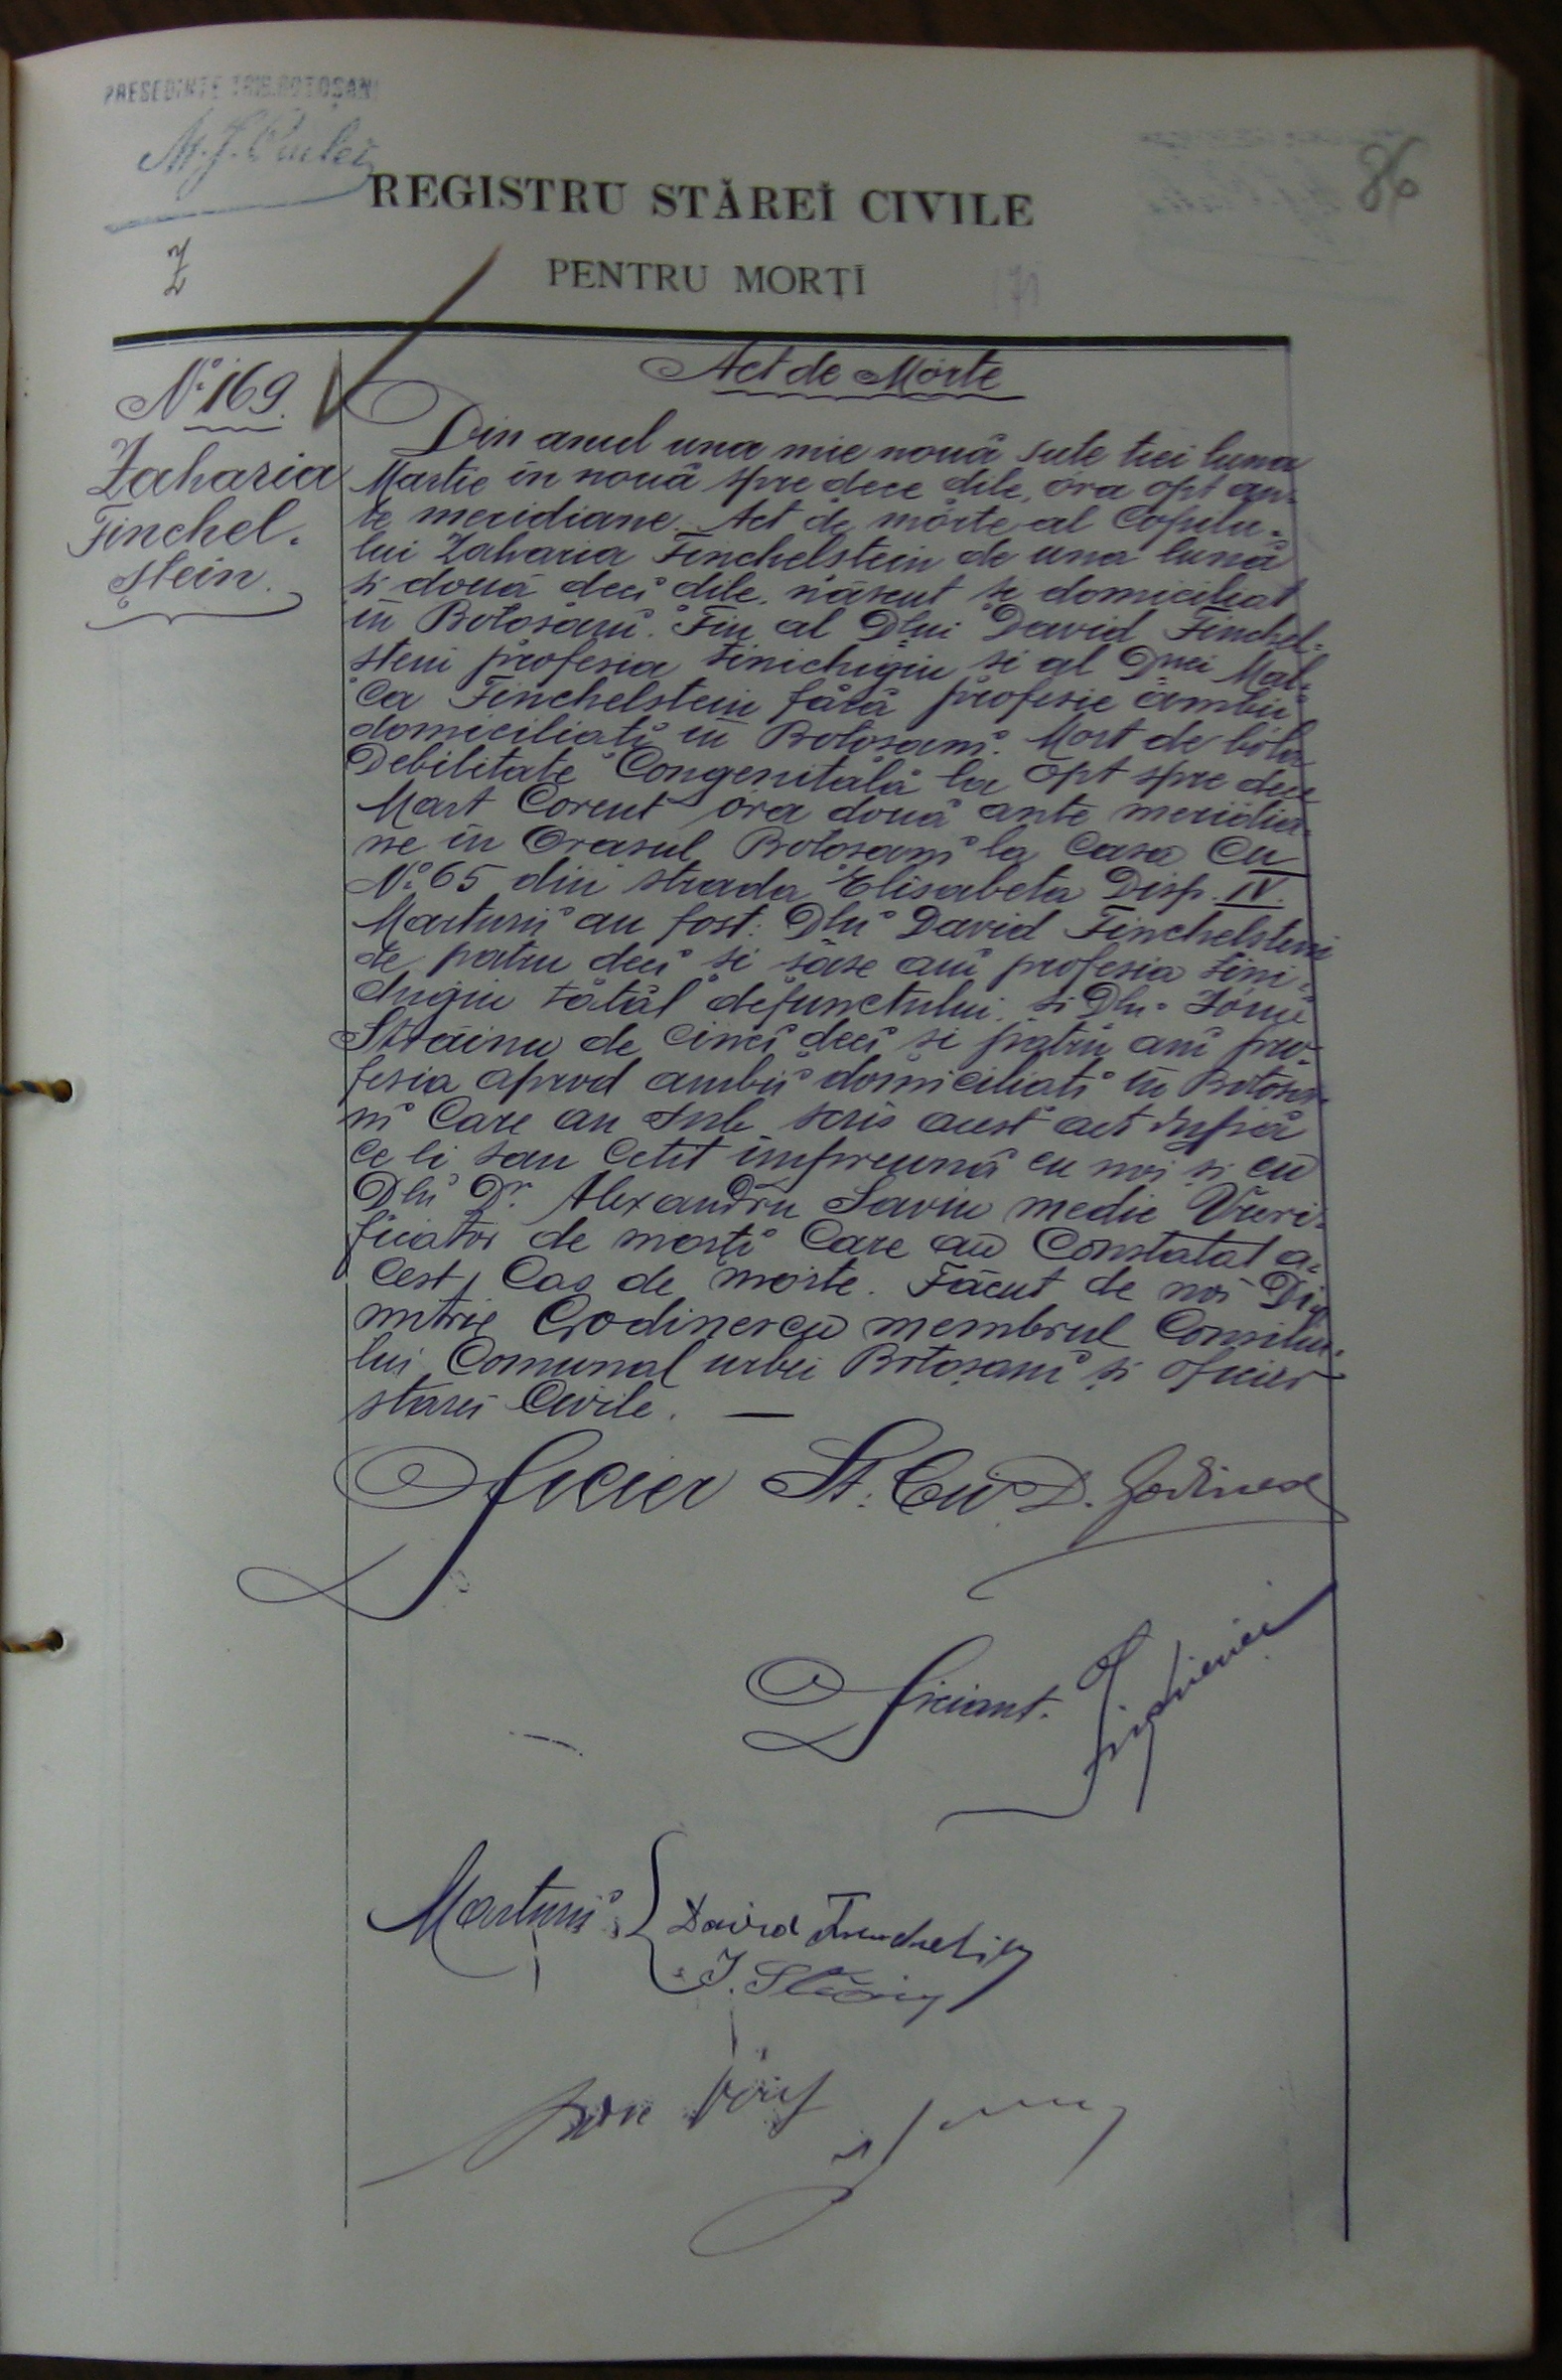 PRESEDINTE TRIB. BOTOȘANI
86
REGISTRU STĂREĬ CIVILE
PENTRU MORȚĪ
Z
Nº 169.
Zaharia
Finchel-
stein.
Act de Mórte
Din anul una mie nouă sute trei luna
Martie in nouă spre dece dile, óra opt an-
te meridiane. Act de mórte al Copilu-
lui Zaharia Finchelstein de una lună
si două deci dile, născut si domiciliat
in Botosani. Fiu al Dlui David Finchel-
stein profesia tinichigiu si al Dnei Mal-
ca Finchelstein fără profesie ambii
domiciliati in Botosani. Mort de bóla
Debilitate Congenitălă la opt spre dece
Mart Corent óra două ante meridia-
ne in Orasul Botosani la Casa Cu
Nº 65 din strada Elisabeta Disp. IV.
Marturii au fost: Dlu David Finchelstein
de patru deci si săse ani profesia tini-
chigiu tătăl defunctului, si Dlu
Străinu de cinci deci si patru ani pro-
fesia aprod ambii domiciliati in Botosa-
ni Care au sub scris acest act după
ce li sau cetit impreună cu noi și cu
Dlu Dr. Alexandru Saviu medic Veri-
ficator de morti Care au Constatat a-
cest Cas de mórte. Făcut de noi Di-
mitrie Godinescu membrul Consiliu-
lui Comunal urbei Botoșani și oficier
starei Civile. —
Oficier St. Civ. D. Godinescu
Oficiant.
Marturii
David
J.